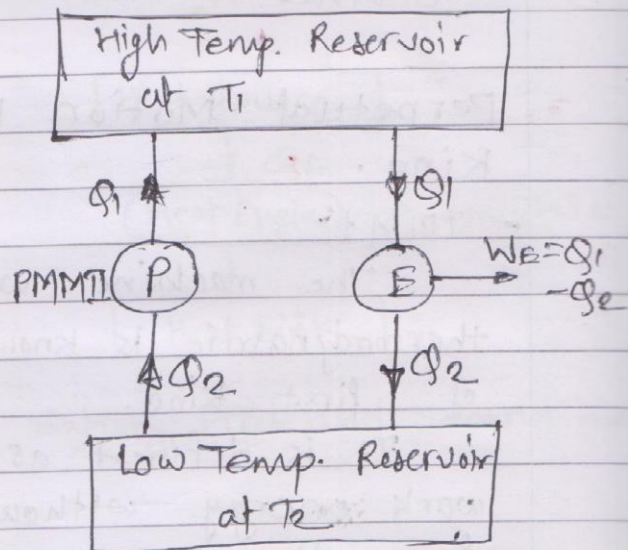 High Temp. Reservoir
at T1
Q1
Q1
PMMII
P
E
WE=Q1
-Q2
Q2
Q2
Low Temp. Reservoir
at T2